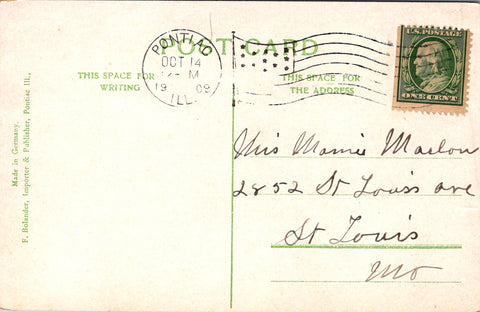 POST CARD
PONTIAC
OCT 14
12- M
1909
ILL.
U.S. POSTAGE
ONE CENT
THIS SPACE FOR
WRITING
THIS SPACE FOR
THE ADDRESS
Miss Mamie Marlon
2852 St Louis ave
St Louis
Mo
Made in Germany.
F. Bolander, Importer & Publisher, Pontiac Ill.,